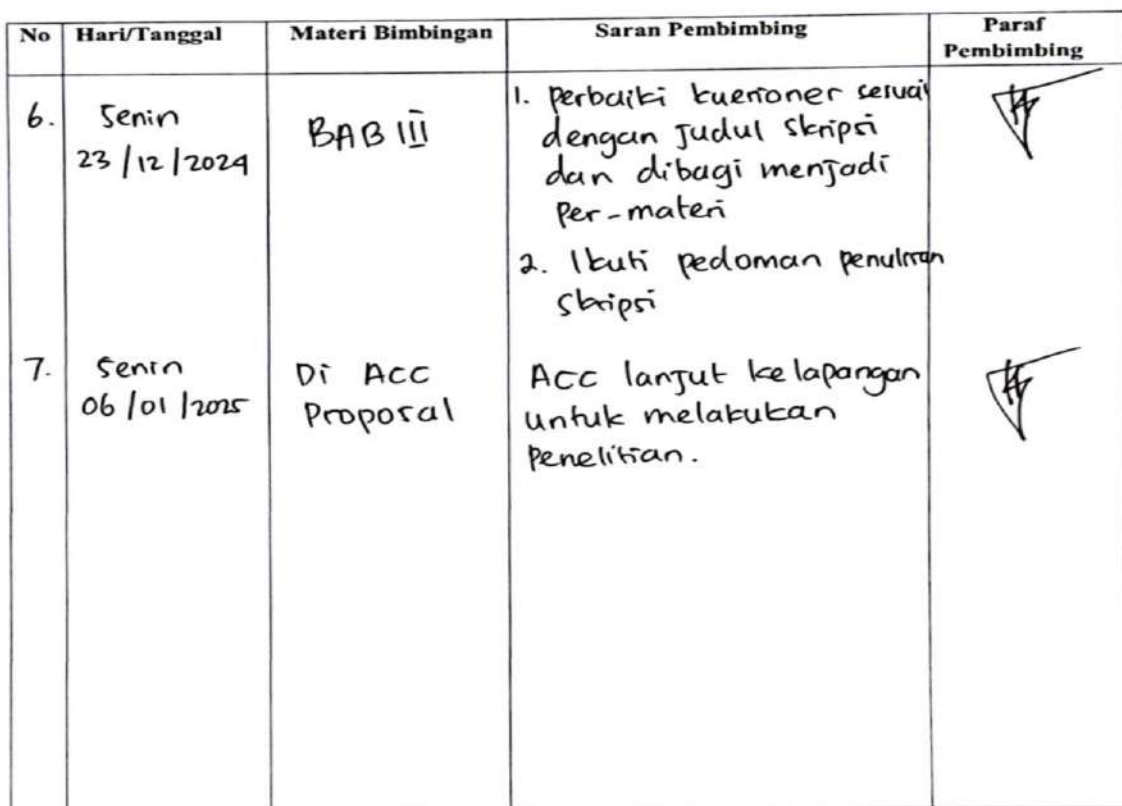 No Hari/Tanggal Materi Bimbingan Saran Pembimbing Paraf
Pembimbing
6. Senin BAB III 1. Perbaiki kuesioner sesuai
23/12/2024 dengan Judul Skripsi
dan dibagi menjadi
Per-materi
2. Ikuti pedoman penulisan
Skripsi
7. Senin Di ACC ACC lanjut kelapangan
06/01/2025 Proposal untuk melakukan
Penelitian.